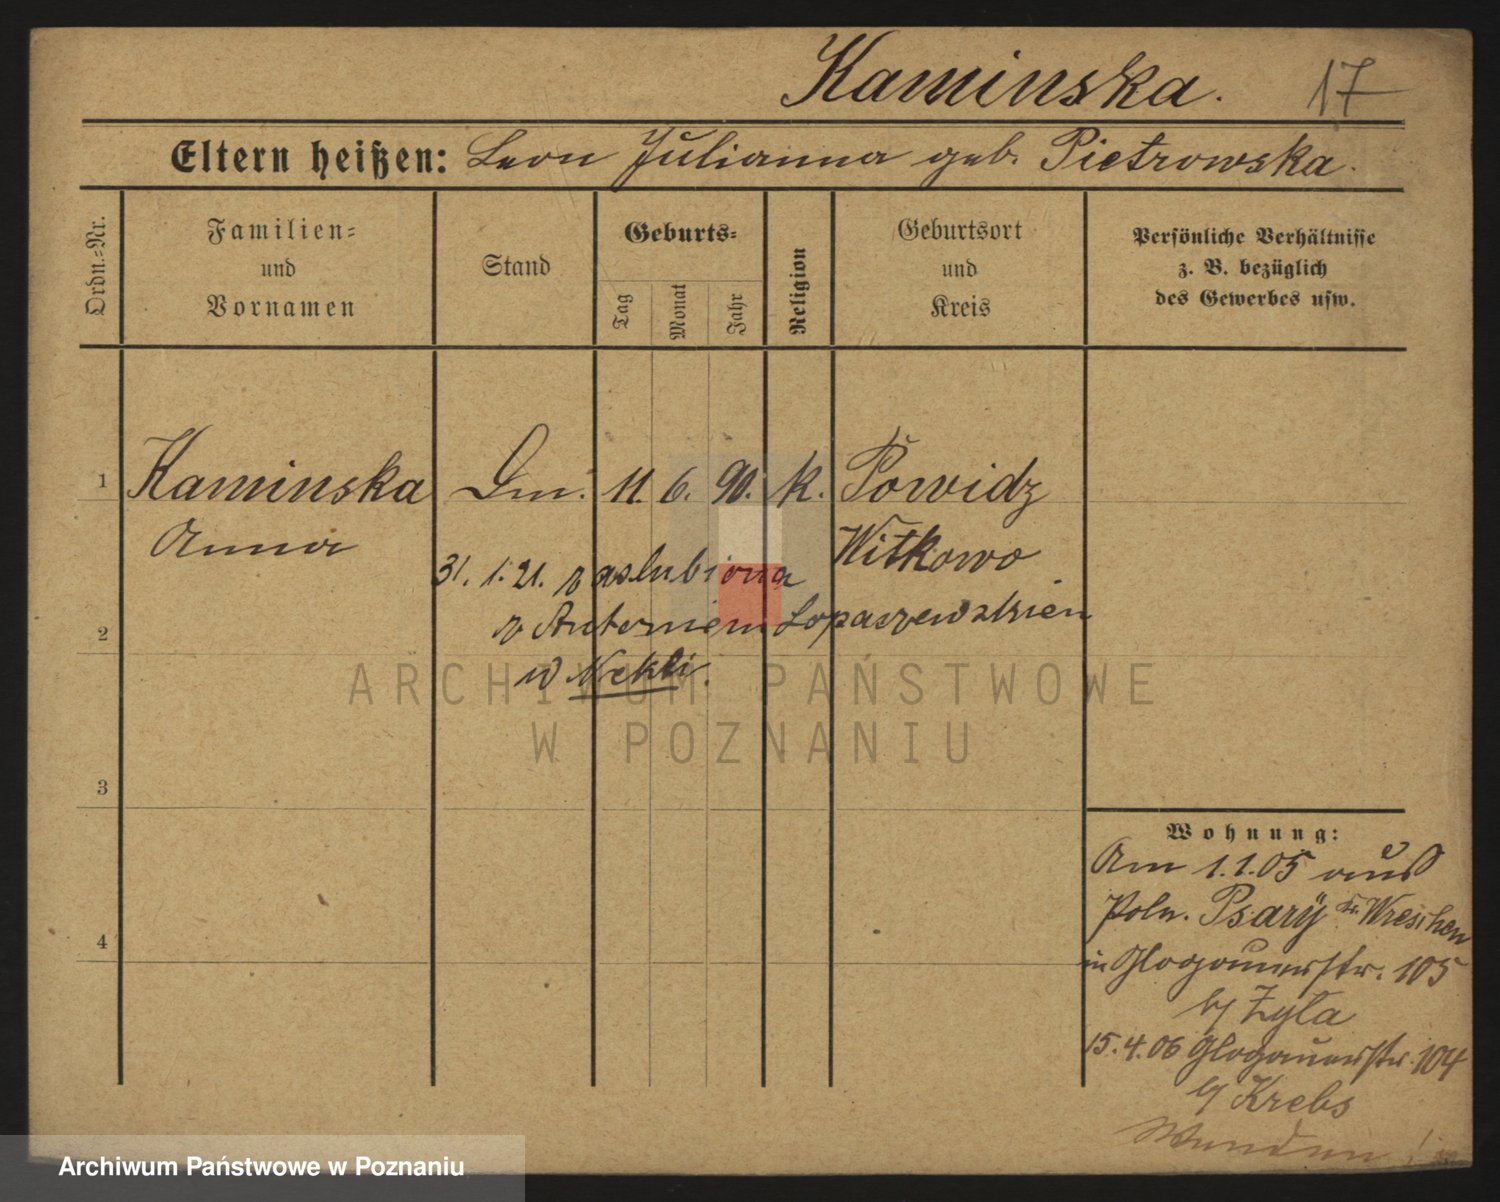 Kaminska. 17
Eltern heißen: Leon Julianna geb. Pietrowska.
Ordn.-Nr.
Familien-
und
Vornamen
Stand
Geburts-
Tag
Monat
Jahr
Religion
Geburtsort
und
Kreis
Persönliche Verhältnisse
z. B. bezüglich
des Gewerbes usw.
1 Kaminska 11. 6. 90. k. Powidz
Anna Witkowo
31. 1. 21. zaslubiona
2 z Antoniem
w Nekli.
ARCHIWUM PAŃSTWOWE
W POZNANIU
3
Wohnung:
Am 1.1.05 aus
4 Poln. Psary Kr. Wreschen
in Glogauerstr. 105
b/ Zyła
15.4.06 Glogauerstr. 104
b/ Krebs
Archiwum Państwowe w Poznaniu